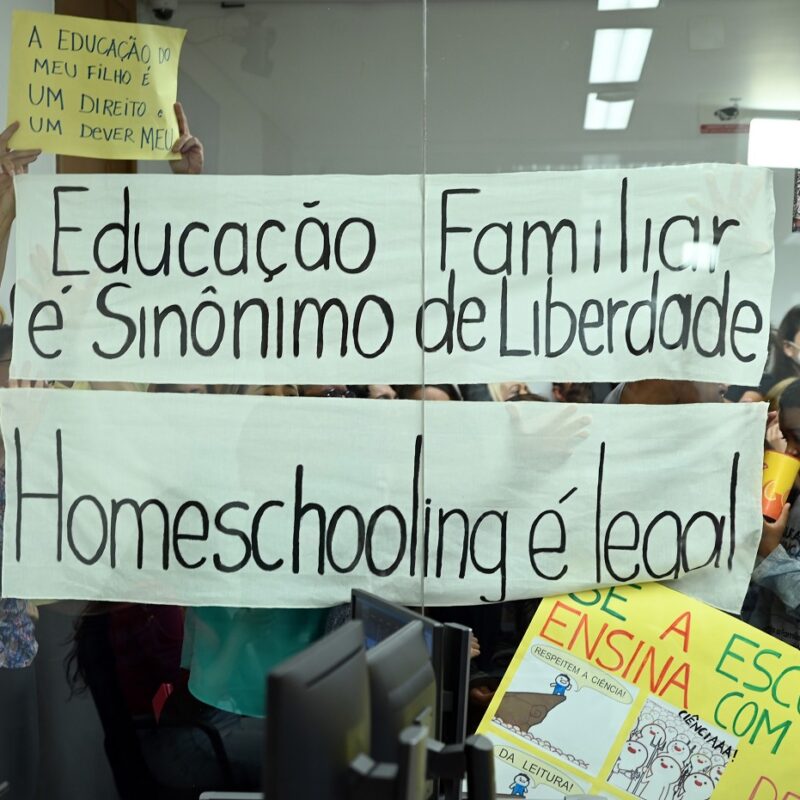 A EDUCAÇÃO DO
MEU FILHO É
UM DIREITO e
UM DEVER MEU
Educação Familiar
é Sinônimo de Liberdade
Homeschooling é legal
SE A
ENSINA
ESCO
COM
RESPEITEM A CIÊNCIA!
CIÊNCIAAA!
DA LEITURA!